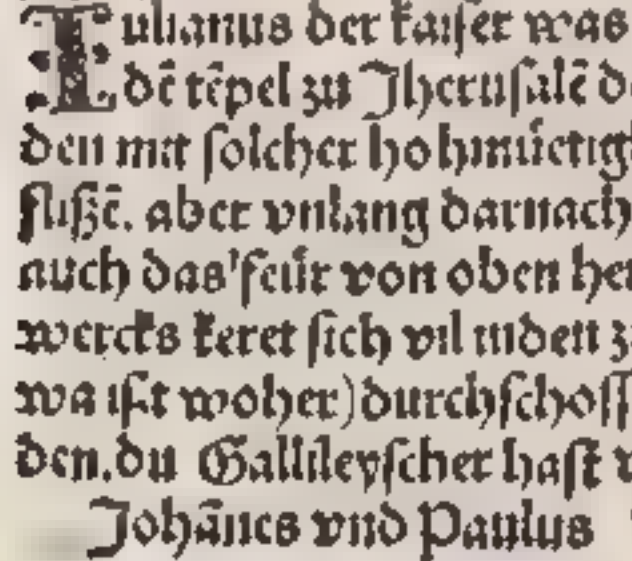 Iulianus der kaiser was
dē tēpel zu Jherusalē
den mit solcher hohmuͤetig
fußē. aber vnlang darnach
auch das feuͤr von oben her
wercks keret sich vil inden
wa ist woher) durchschoss
den. du Gallileyscher hast
Johānes vnd Paulus